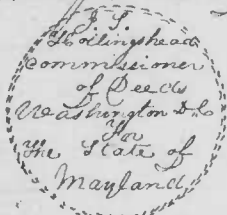 J. S.
Hollingshead
Commissioner
of Deeds
Washington D.C.
For
the State of
Mayland